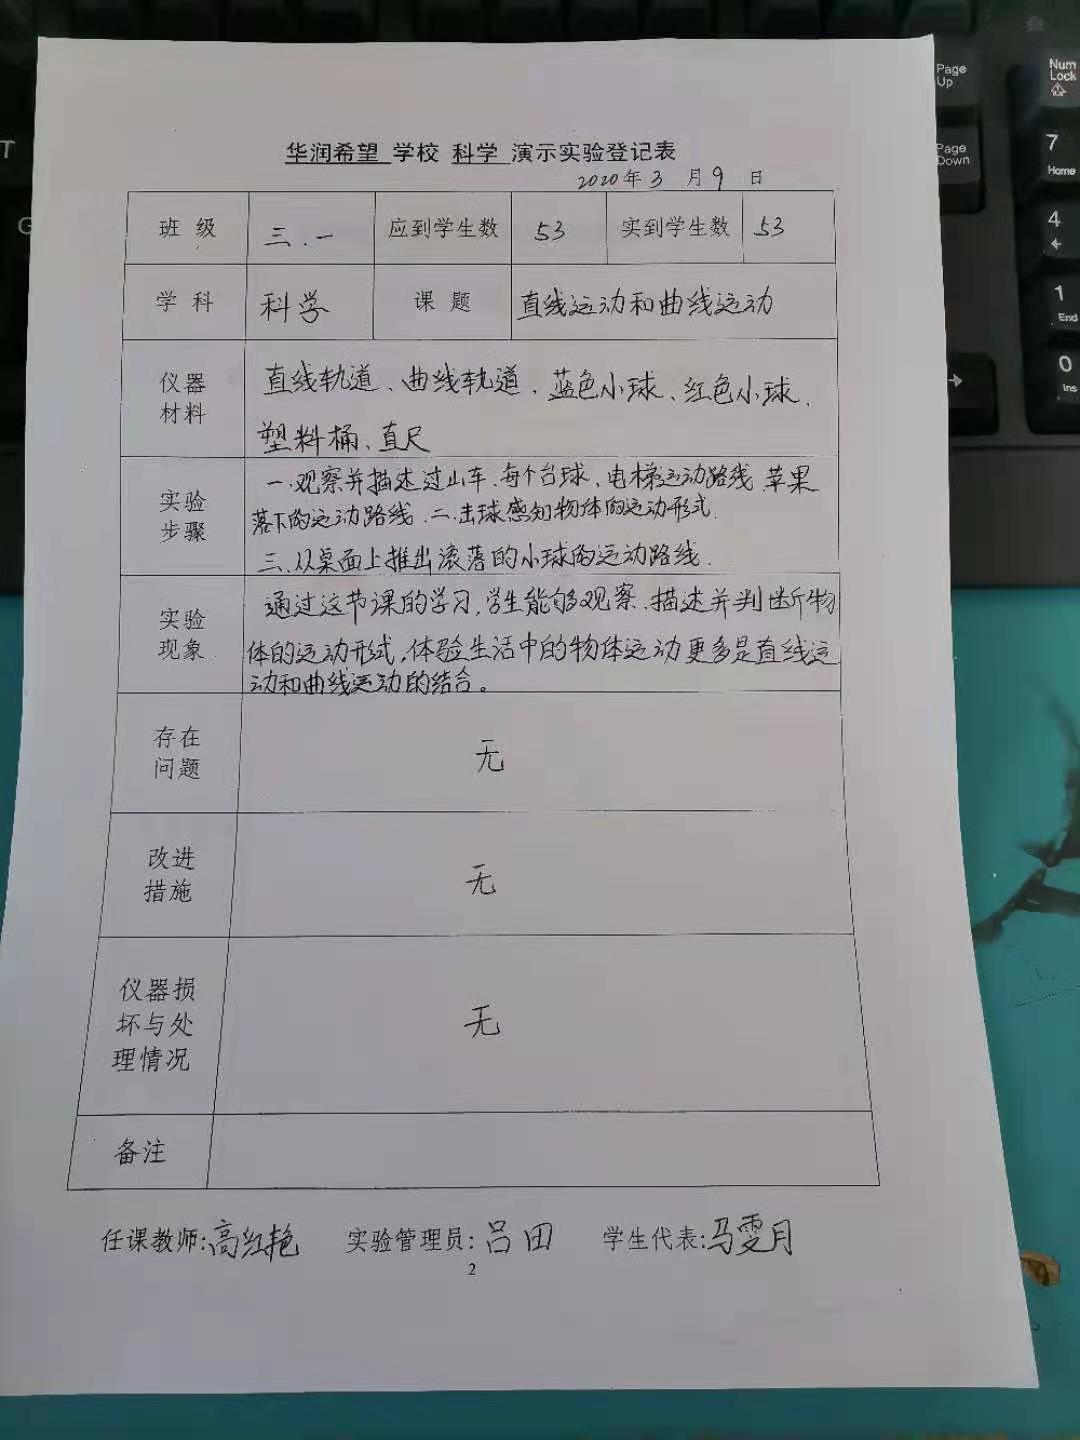 华润希望 学校 科学 演示实验登记表
2020年3月9日
班级 三.一 应到学生数 53 实到学生数 53
学科 科学 课题 直线运动和曲线运动
仪器材料
直线轨道、曲线轨道、蓝色小球、红色小球、
塑料桶、直尺
实验步骤
一.观察并描述过山车、每个台球、电梯运动路线、苹果
落下的运动路线.二.击球感知物体的运动形式.
三.从桌面上推出滚落的小球的运动路线.
实验现象
通过这节课的学习,学生能够观察、描述并判断物
体的运动形式,体验生活中的物体运动更多是直线运
动和曲线运动的结合。
存在问题
无
改进措施
无
仪器损坏与处理情况
无
备注
任课教师:高红艳 实验管理员:吕田 学生代表:马雯月
2
Page Up
Page Down
Num Lock
7
Home
4
1
End
0
Ins
T
G